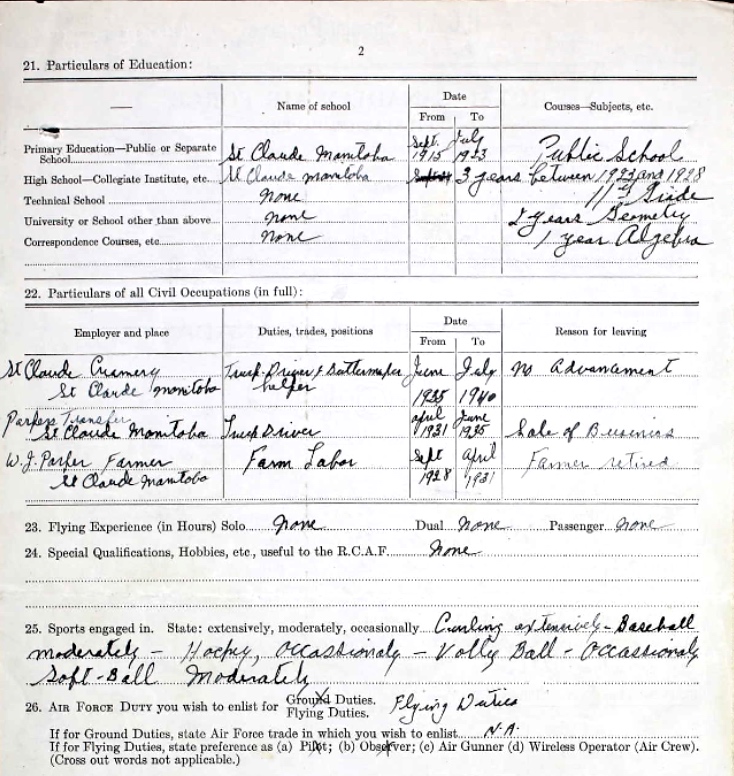 2
21. Particulars of Education:
Name of school Date Courses—Subjects, etc.
From To
Primary Education—Public or Separate School St Claude Manitoba Sept. 1915 July 1923 Public School
High School—Collegiate Institute, etc. St Claude manitoba 3 years between 1923 and 1928
Technical School none 11th Grade
University or School other than above none 2 years Geometry
Correspondence Courses, etc. none 1 year Algebra
22. Particulars of all Civil Occupations (in full):
Employer and place Duties, trades, positions Date Reason for leaving
From To
St Claude Cramery Truck-Driver & Buttermaker June July no Advancement
St Claude manitoba helper 1935 1940
Parkers Transfer april June
St Claude Manitoba Truck Driver 1931 1935 Sale of Business
W. J. Parker Farmer Farm Labor Sept april Farmer retired
St Claude Manitoba 1928 1931
23. Flying Experience (in Hours) Solo none Dual none Passenger none
24. Special Qualifications, Hobbies, etc., useful to the R.C.A.F. none
25. Sports engaged in. State: extensively, moderately, occasionally Curling extensively - Baseball
moderately - Hockey, Occassionaly - Volly Ball - Occassionaly
Soft-Ball Moderately
26. AIR FORCE DUTY you wish to enlist for Ground Duties. Flying Duties
Flying Duties.
If for Ground Duties, state Air Force trade in which you wish to enlist N.A.
If for Flying Duties, state preference as (a) Pilot; (b) Observer; (c) Air Gunner (d) Wireless Operator (Air Crew).
(Cross out words not applicable.)